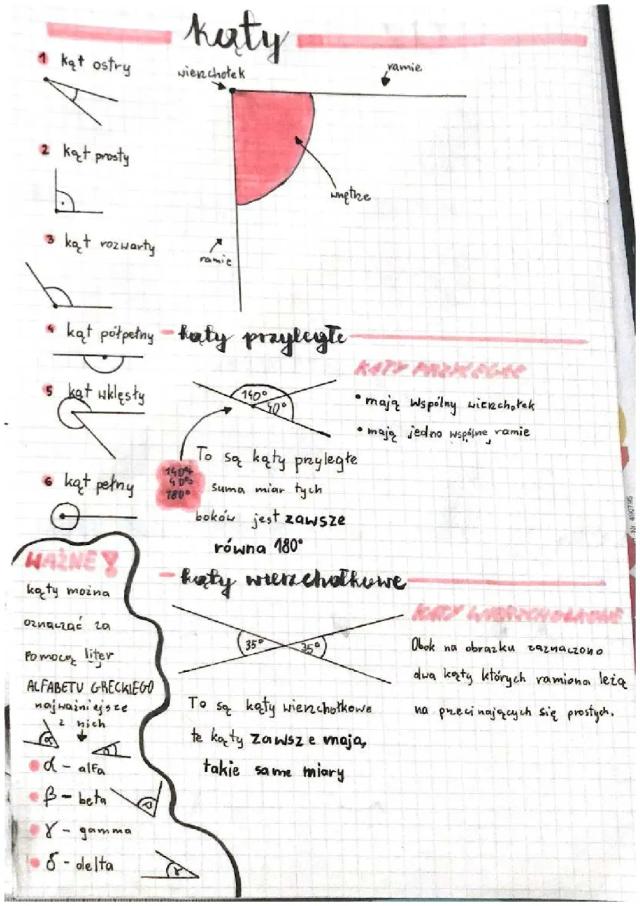 kąty
1 kąt ostry
wierzchołek
ramie
2 kąt prosty
wnętrze
3 kąt rozwarty
ramie
4 kąt półpełny
kąty przyległe
KĄTY PRZYLEGŁE
140°
40°
• mają wspólny wierzchołek
• mają jedno wspólne ramie
5 kąt wklęsły
To są kąty przyległe
140°+
40°=
180°
suma miar tych
boków jest zawsze
równa 180°
6 kąt pełny
WAŻNE!
kąty można
oznaczać za
pomocą liter
ALFABETU GRECKIEGO
najważniejsze
z nich
α
α - alfa
β - beta
γ - gamma
δ - delta
γ
kąty wierzchołkowe
KĄTY WIERZCHOŁKOWE
35°
35°
Obok na obrazku zaznaczono
dwa kąty których ramiona leżą
na przecinających się prostych.
To są kąty wierzchołkowe
te kąty zawsze mają
takie same miary